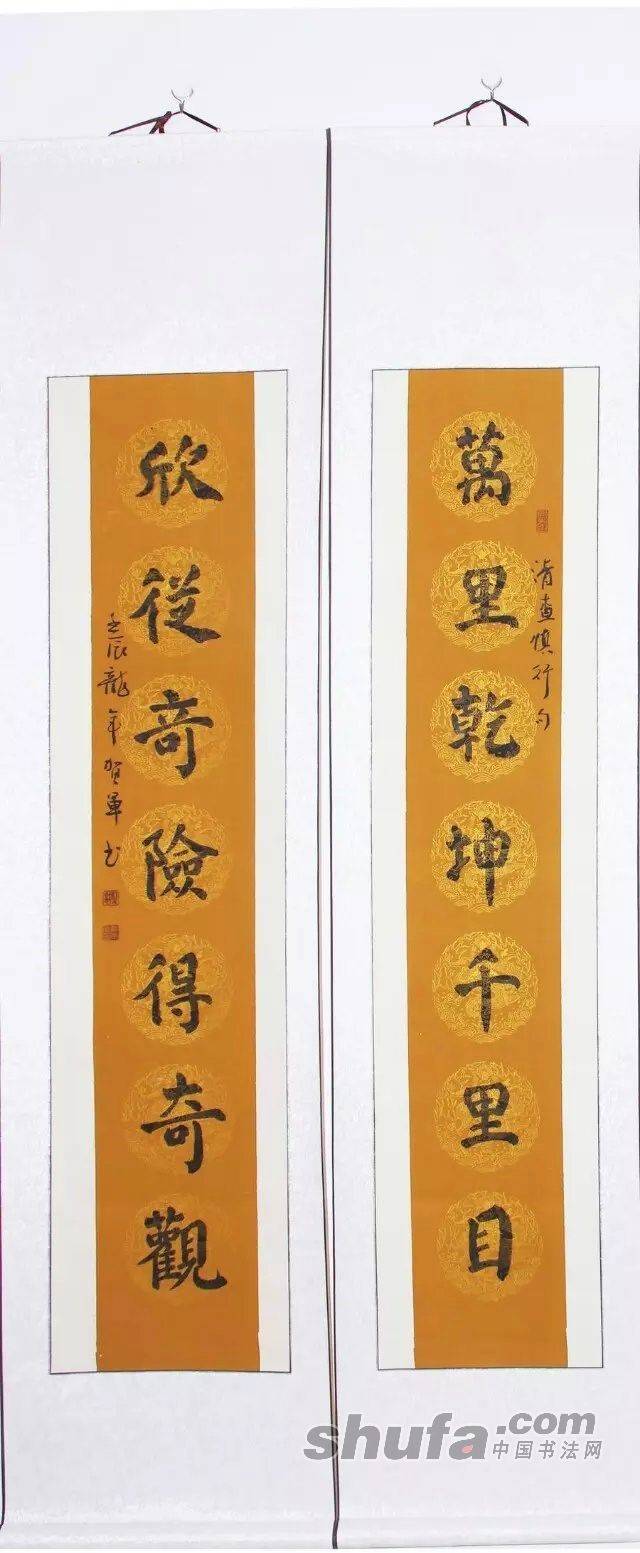 萬里乾坤千里目
清查慎行句
欣從奇險得奇觀
壬辰龍年賀軍书
shufa.com
中国书法网